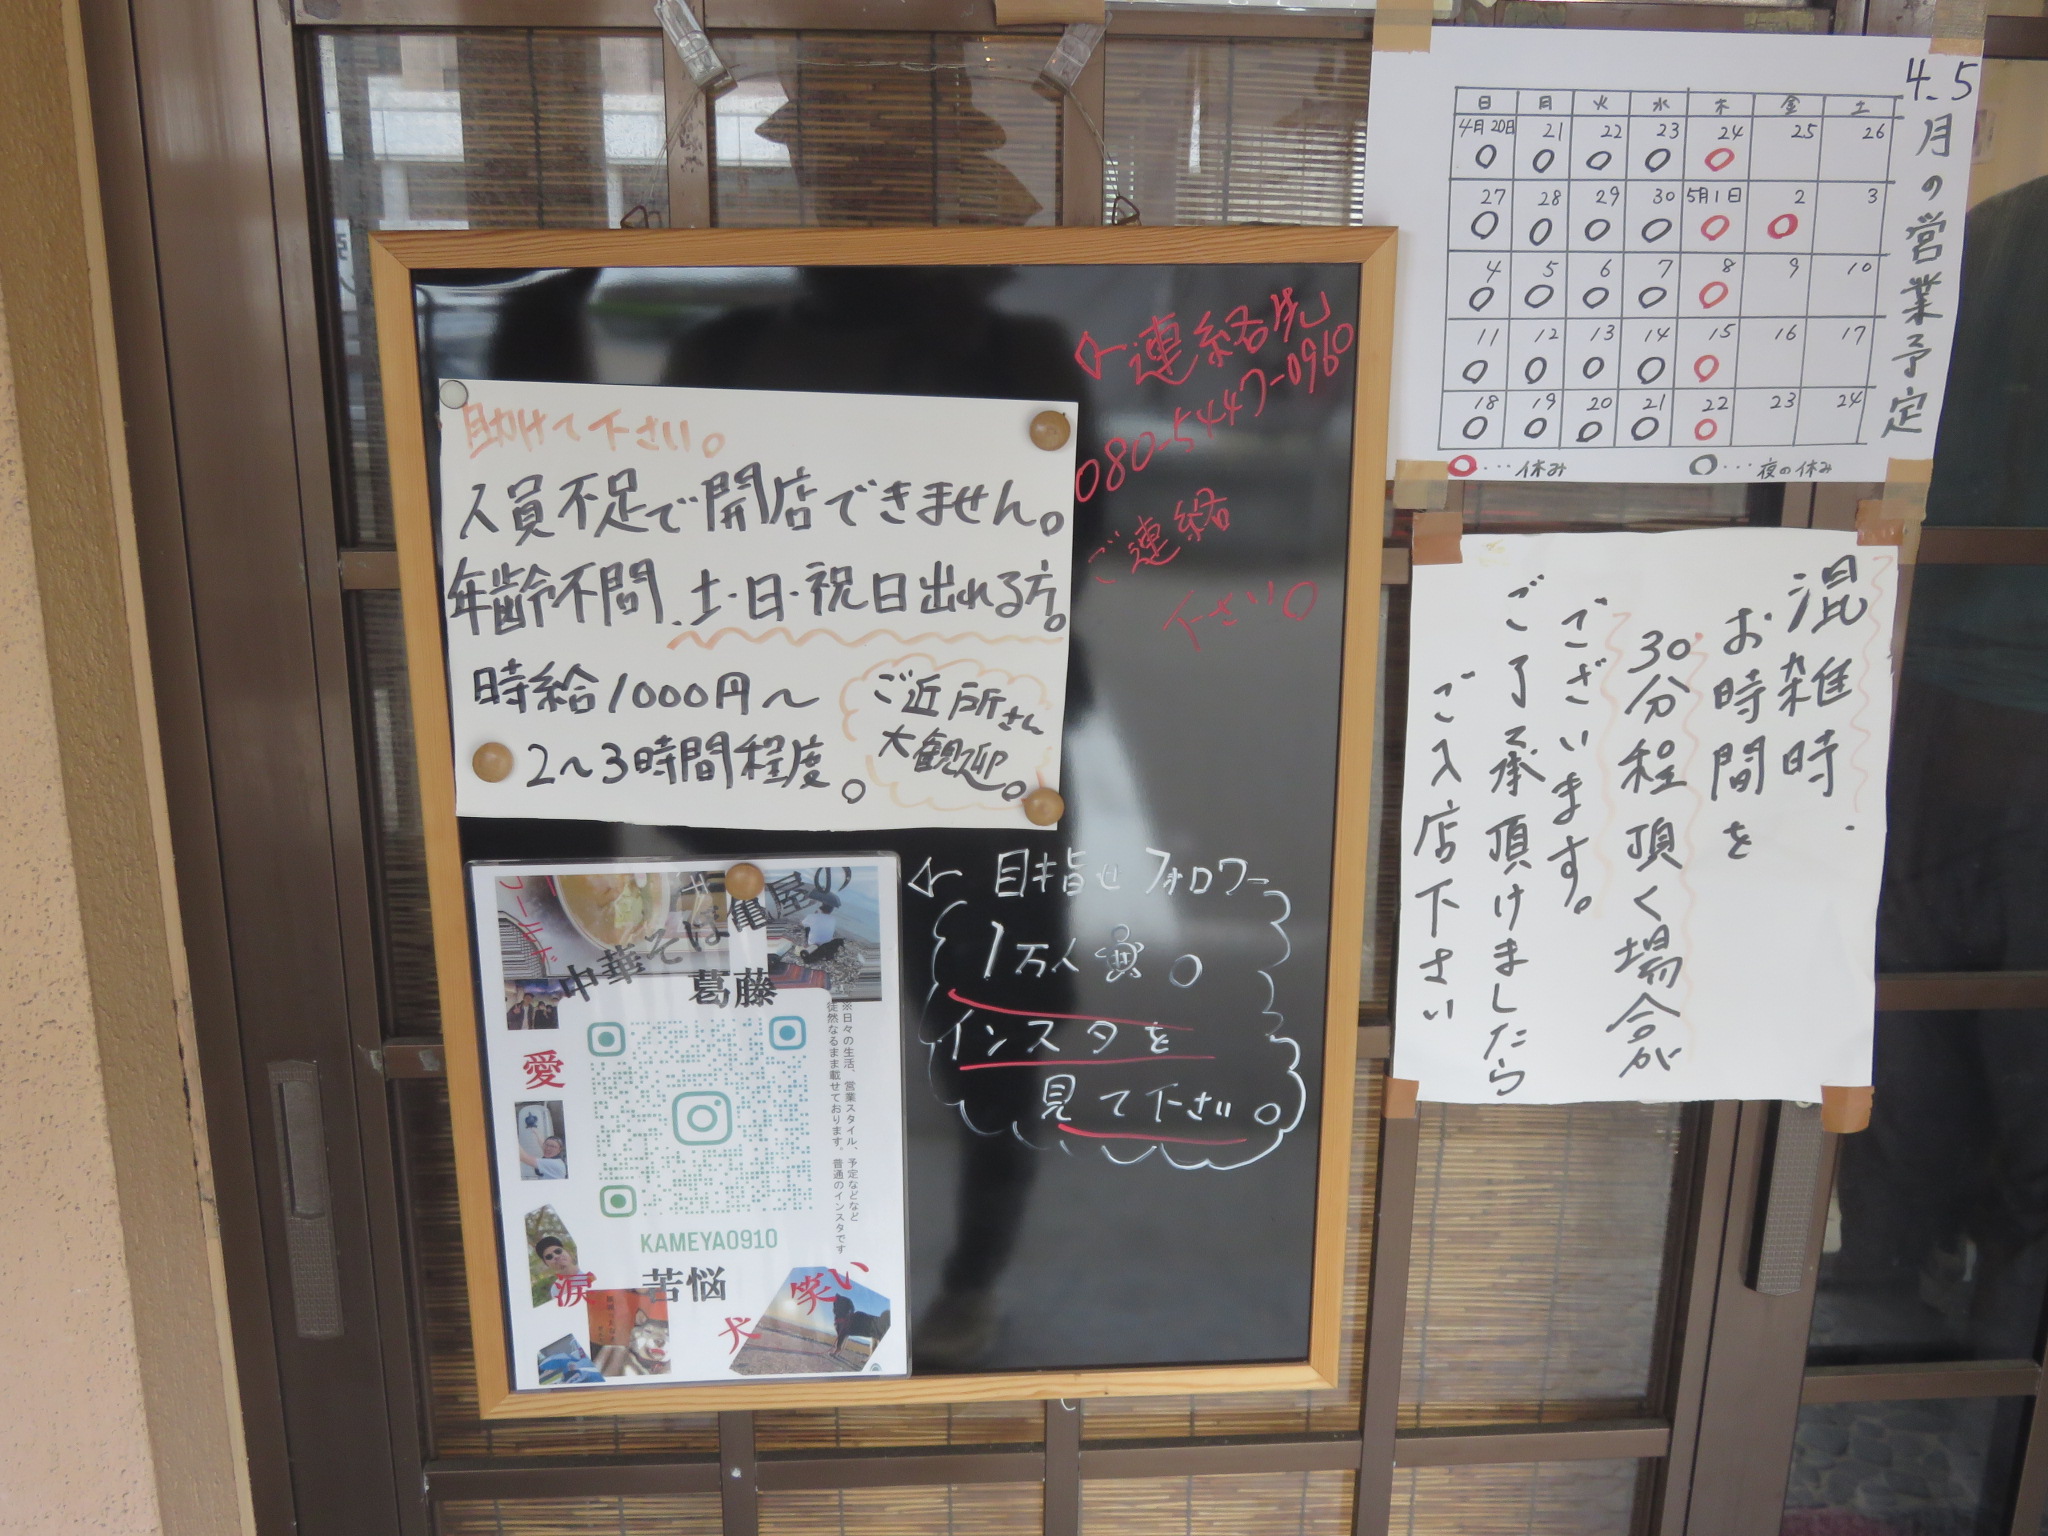 助けて下さい。
人員不足で開店できません。
年齢不問、土・日・祝日出れる方。
時給1000円～
2～3時間程度。
ご近所さん
大歓迎。
連絡先
080-5447-0960
ご連絡
下さい。
目指せフォロワー
1万人。
インスタを
見て下さい。
ワールド
中華そば亀屋の
葛藤
愛
※日々の生活、営業スタイル、予定などなど
徒然なるまま載せております。普通のインスタです
KAMEYA0910
涙
苦悩
犬
笑い
4.5月の営業予定
日 月 火 水 木 金 土
4月20日 21 22 23 24 25 26
〇 〇 〇 〇 〇
27 28 29 30 5月1日 2 3
〇 〇 〇 〇 〇 〇
4 5 6 7 8 9 10
〇 〇 〇 〇 〇
11 12 13 14 15 16 17
〇 〇 〇 〇 〇
18 19 20 21 22 23 24
〇 〇 〇 〇 〇
〇…休み 〇…夜の休み
混雑時、
お時間を
30分程頂く場合が
ございます。
ご了承頂けましたら
ご入店下さい